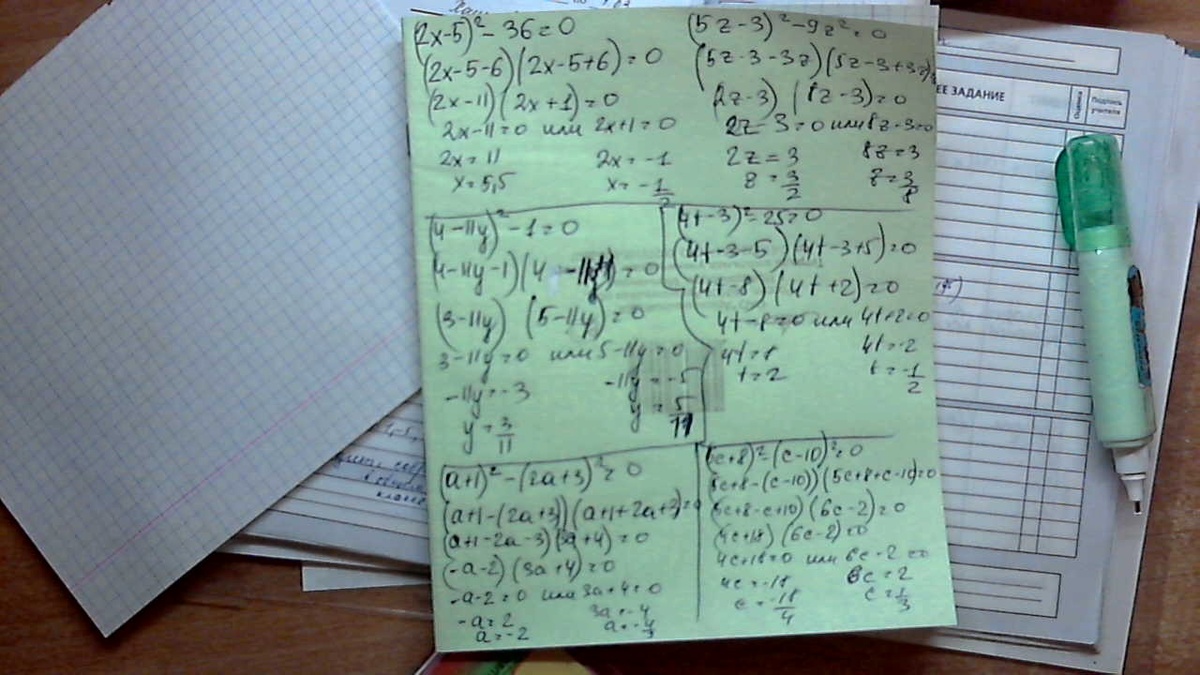 (2x-5)²-36=0
(2x-5-6)(2x-5+6)=0
(2x-11)(2x+1)=0
2x-11=0 или 2x+1=0
2x=11 2x=-1
x=5,5 x=-1/2
(5z-3)²-9z²=0
(5z-3-3z)(5z-3+3z)=
(2z-3)(8z-3)=0
2z-3=0 или 8z-3=0
2z=3 8z=3
8=3/2 z=3/8
(4-11y)²-1=0
(4-11y-1)(4-11y+1)=0
(3-11y)(5-11y)=0
3-11y=0 или 5-11y=0
-11y=-3 -11y=-5
y=3/11 y=5/11
(4t-3)²-25=0
(4t-3-5)(4t-3+5)=0
(4t-8)(4t+2)=0
4t-8=0 или 4t+2=0
4t=8 4t=-2
t=2 t=-1/2
(a+1)²-(2a+3)²=0
(a+1-(2a+3))(a+1+2a+3)=0
(a+1-2a-3)(3a+4)=0
(-a-2)(3a+4)=0
-a-2=0 или 3a+4=0
-a=2 3a=-4
a=-2 a=-4/3
(5c+8)²-(c-10)²=0
(5c+8-(c-10))(5c+8+c-10)=0
(5c+8-c+10)(6c-2)=0
(4c+18)(6c-2)=0
4c+18=0 или 6c-2=0
4c=-18 6c=2
c=-18/4 c=1/3
ЕЕ ЗАДАНИЕ
Оценка
Подпись учителя